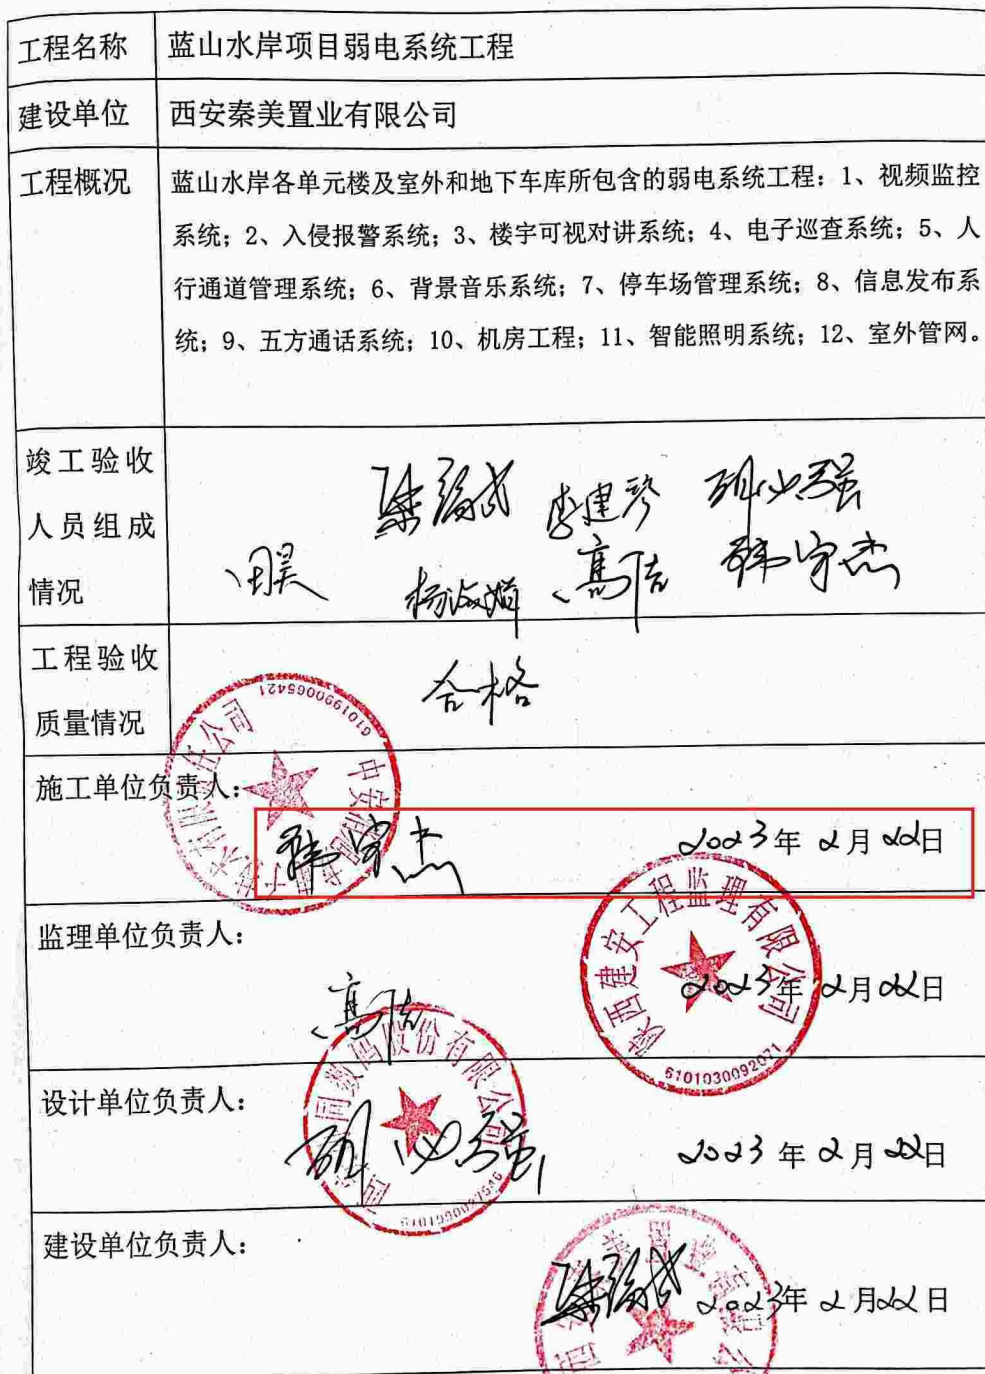 工程名称 蓝山水岸项目弱电系统工程
建设单位 西安秦美置业有限公司
工程概况 蓝山水岸各单元楼及室外和地下车库所包含的弱电系统工程：1、视频监控
系统；2、入侵报警系统；3、楼宇可视对讲系统；4、电子巡查系统；5、人
行通道管理系统；6、背景音乐系统；7、停车场管理系统；8、信息发布系
统；9、五方通话系统；10、机房工程；11、智能照明系统；12、室外管网。
竣工验收
人员组成
情况
李建琴
高洁 韩宇杰
工程验收
质量情况
合格
6101990065421
施工单位负责人：
韩宇杰 2023年2月22日
监理单位负责人：
高洁 2023年2月22日
陕西建安工程监理有限公司
6101030092071
设计单位负责人：
2023年2月22日
股份有限公司
建设单位负责人：
2023年2月22日